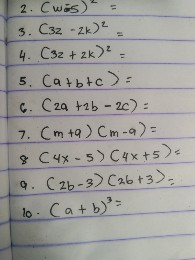 2. (w-5)² =
3. (3z - 2k)² =
4. (3z + 2k)² =
5. (a+b+c) =
6. (2a+2b - 2c) =
7. (m+9) (m-9) =
8 (4x - 5) (4x + 5) =
9. (2b-3) (2b+3) =
10. (a + b)³ =